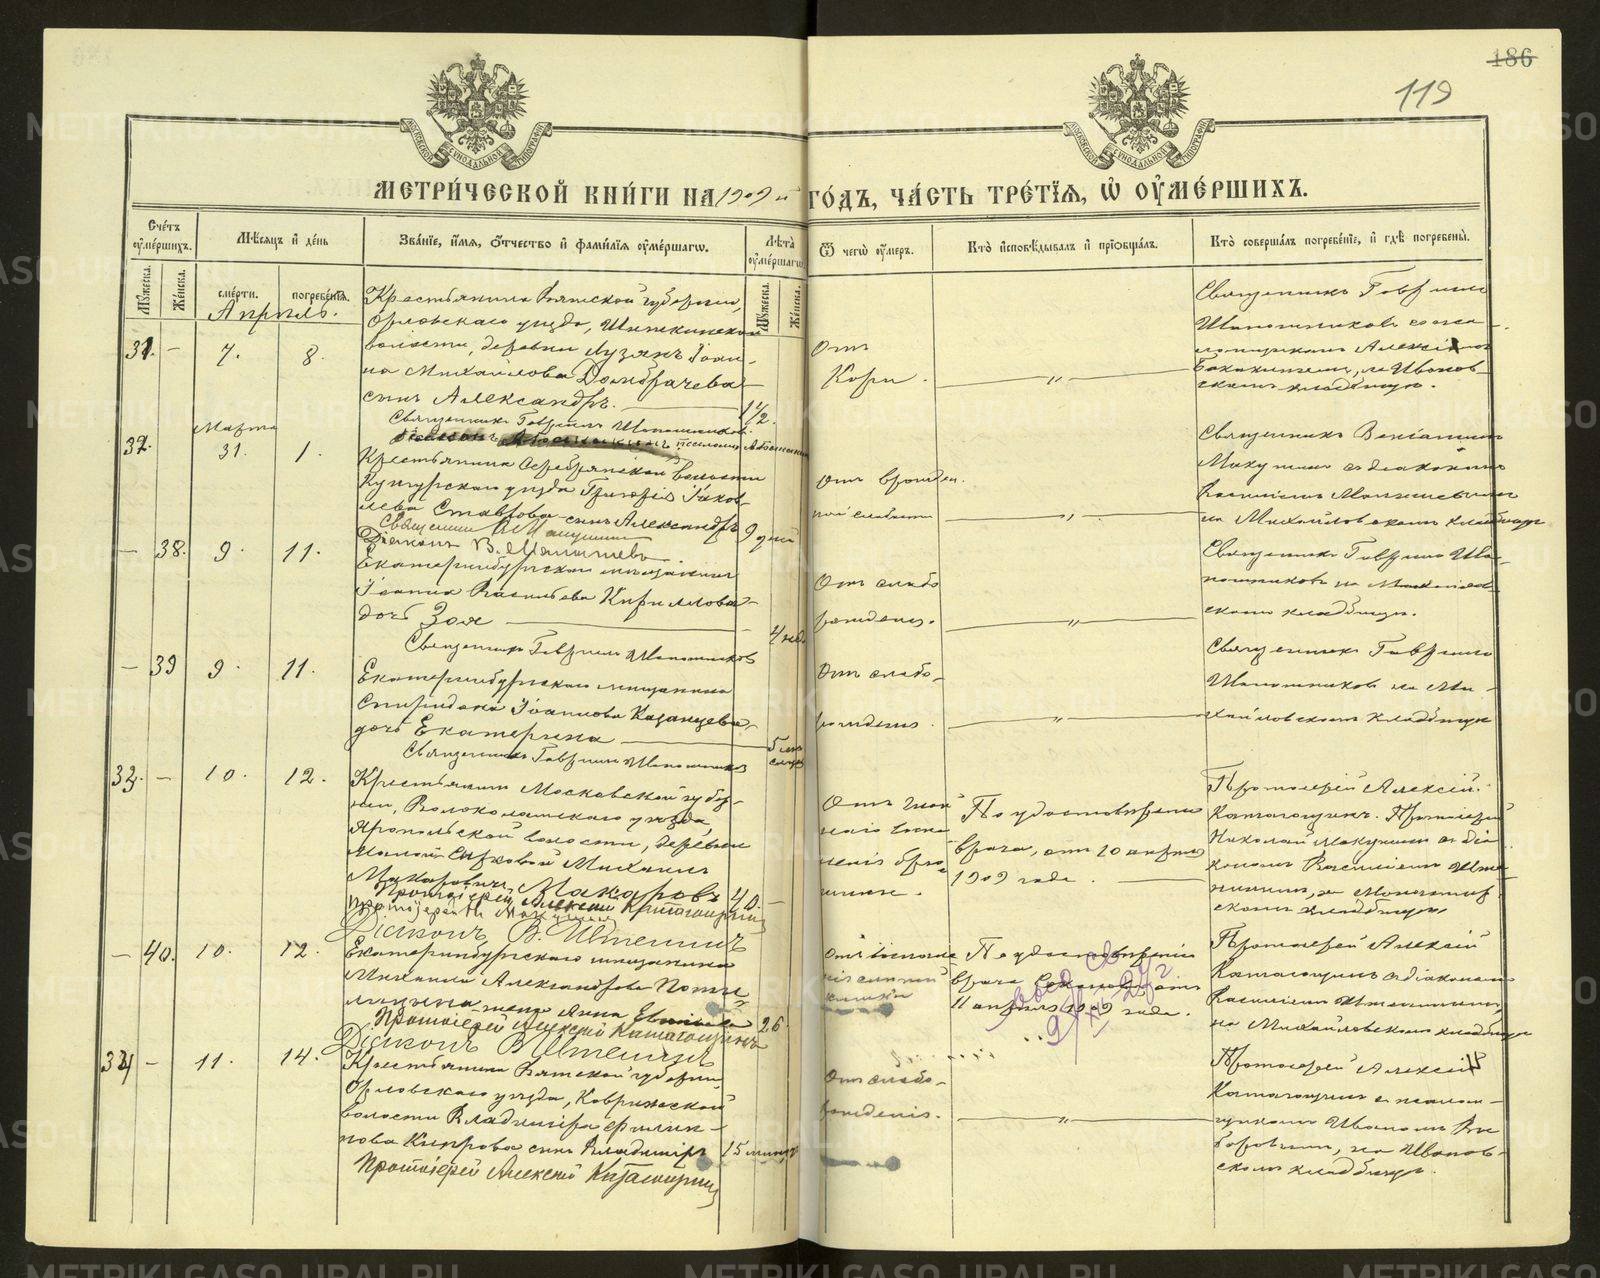 186
119
МОСКОВСКОЙ СѴНОДАЛЬНОЙ ТИПОГРАФІИ
МОСКОВСКОЙ СѴНОДАЛЬНОЙ ТИПОГРАФІИ
МЕТРИ́ЧЕСКОЙ КНИ́ГИ НА 1909 й ГО́ДЪ, ЧА́СТЬ ТРЕ́ТІѦ, Ѽ ОУ҆МЕ́РШИХЪ.
Сче́тъ оу҆ме́ршихъ.
Мꙋ́жеска.
Же́нска.
Мѣ́сѧцъ и҆ де́нь
сме́рти.
погребе́нїѧ.
Зва́нїе, и҆́мѧ, ѻ҆́тчество и҆ фами́лїѧ оу҆ме́ршагѡ.
Лѣ́та оу҆ме́ршагѡ.
Мꙋ́жеска.
Же́нска.
Ѿ чегѡ̀ оу҆́меръ.
Кто̀ и҆сповѣ́дывалъ и҆ прїѻбща́лъ.
Кто̀ соверша́лъ погребе́нїе, и҆ гдѣ̀ погребены̀.
Апрѣль.
31. — 7. 8.
Крестьянина Вятской губерніи,
Орловскаго уѣзда,
волости, деревни Лузянъ Іоан-
на Михайлова Домбрачева
сынъ Александръ. 1 1/2.
Священникъ Гавріилъ Шапошников.
Отъ
Кори.
"
Священникъ Гавріилъ
Шапошниковъ со пса-
ломщикомъ Алексіемъ
на Иванов-
скомъ кладбищѣ.
Марта
32. 31. 1.
Крестьянина Серебрянской волости
Кунгурскаго уѣзда Григорія Іаков-
лева Ставрова сынъ Александръ 9 дней
Священникъ В. Макушинъ
Діаконъ В.
Отъ врожден-
ной слабости
"
Священникъ Веніаминъ
Макушинъ съ діакономъ
Василіемъ
на Михайловскомъ кладбищѣ
— 38. 9 11.
Екатеринбургскаго мѣщанина
Іоанна Васильева Кириллова
дочь Зоя 4 нед.
Священникъ Гавріилъ Шапошников
Отъ слабо
рожденія.
"
Священникъ Гавріилъ Ша-
пошниковъ на Михайлов-
скомъ кладбищѣ.
— 39 9. 11.
Екатеринбургскаго мѣщанина
Спиридона Іоаннова Казанцева
дочь Екатерина
Священникъ Гавріилъ Шапошников
Отъ слабо-
рожденія.
"
Священникъ Гавріилъ
Шапошниковъ на Ми-
хайловскомъ кладбищѣ
33. — 10. 12.
Крестьянинъ Московской губер-
ніи, Волоколамскаго уѣзда
Яропольской волости, деревни
Малой Сырковой Михаилъ
Макаровичъ Макаровъ 40. —
Протоіерей Алексій Катагощинъ
Протоіерей Н. Макушинъ
Діаконъ В. Иштенинъ
Отъ гной
наго воспа
ленія брю
шины.
По удостовѣренію
врача, отъ 10 апрѣля
1909 года.
Протоіерей Алексій
Катагощинъ. Протоіерей
Николай Макушинъ съ діа-
кономъ Василіемъ Иште-
нинымъ, на Монастыр-
скомъ кладбищѣ.
— 40. 10. 12.
Екатеринбургскаго мѣщанина
Михаила Александрова
жена Анна 26.
Протоіерей Алексій Катагощинъ
Діаконъ В. Иштенинъ
Отъ воспале
нія слѣпой
кишки
По удостовѣренію
врача отъ
11 апрѣля 1909 года.
Протоіерей Алексій
Катагощинъ съ діакономъ
Василіемъ Иштенинымъ,
на Михайловскомъ кладбищѣ
34 — 11. 14.
Крестьянина Вятской губерніи,
Орловскаго уѣзда,
волости Владиміра Филип-
пова Кипрова сынъ Владиміръ 15 минутъ
Протоіерей Алексій Катагощинъ
Отъ слабо-
рожденія.
"
Протоіерей Алексій
Катагощинъ съ псалом-
щикомъ Иваномъ
на Иванов-
скомъ кладбищѣ.
METRIKI.GASO-URAL.RU